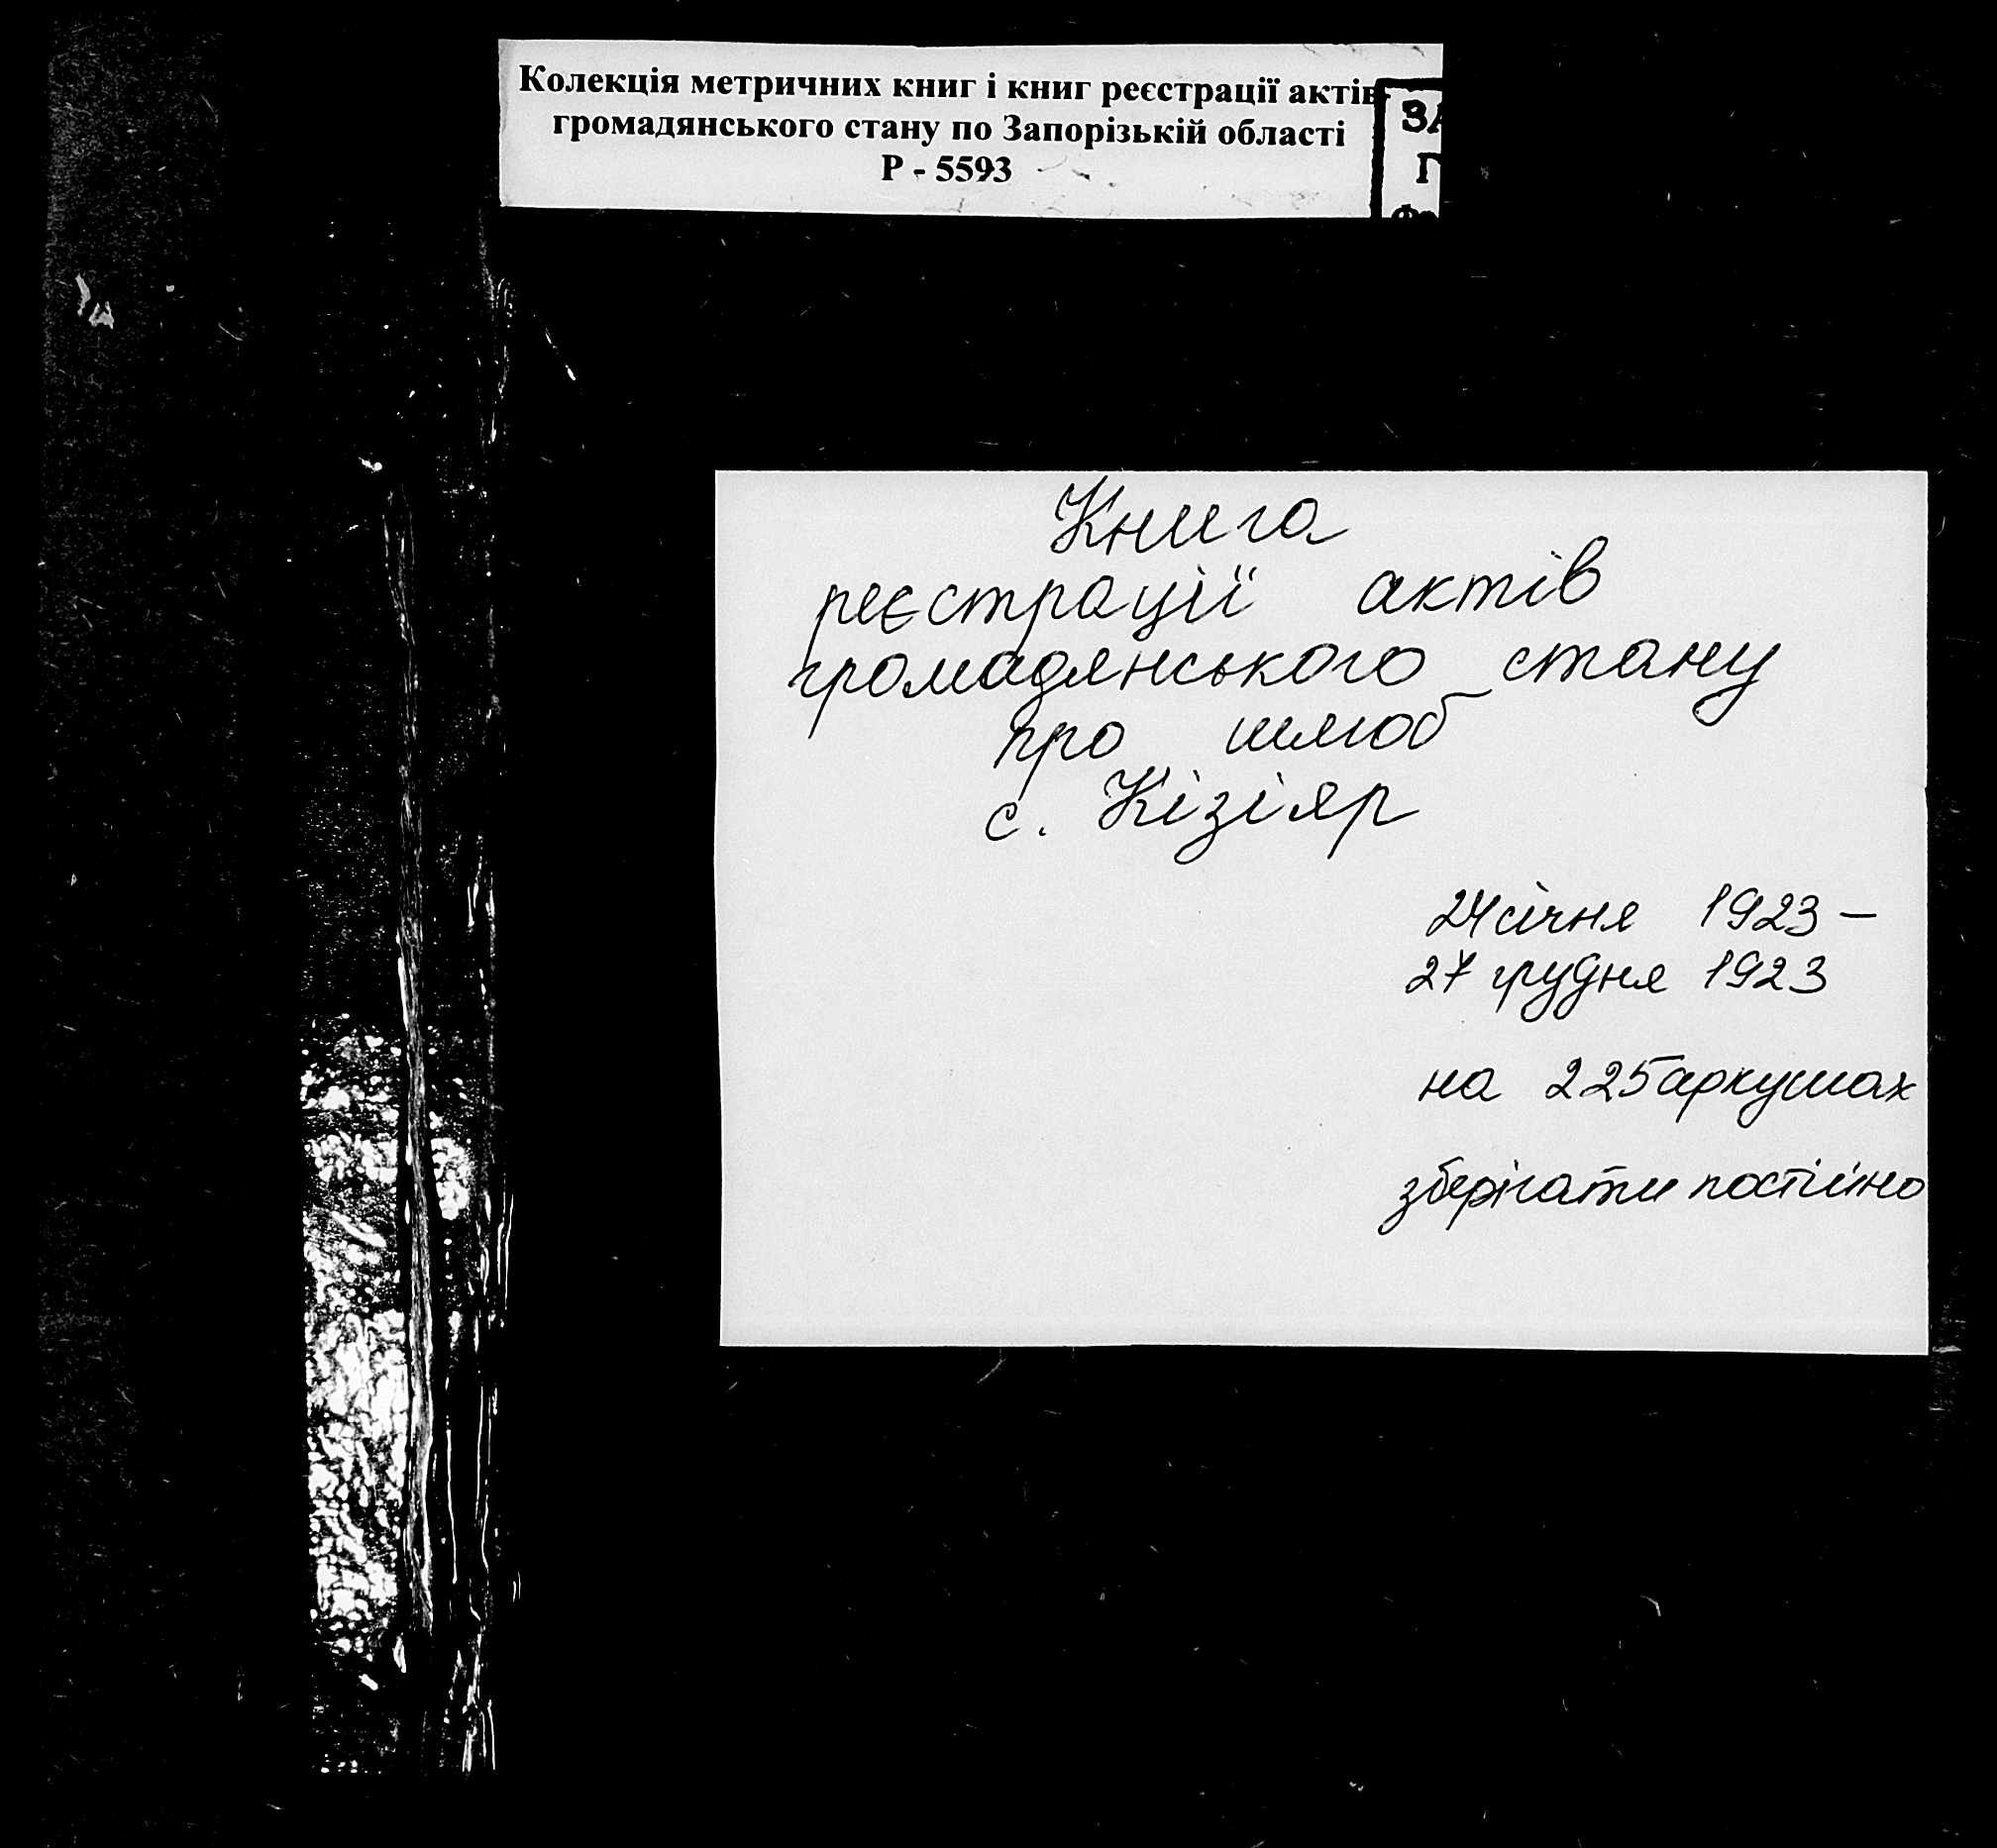 Колекція метричних книг і книг реєстрації актів
громадянського стану по Запорізькій області
Р - 5593
ЗА
Г
Книга
реєстрації актів
громадянського стану
про шлюб
с. Кізіяр
24 січня 1923 –
27 грудня 1923
на 225 аркушах
зберігати постійно